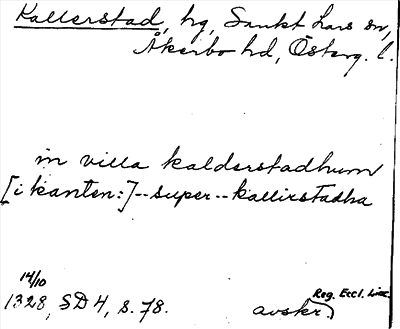 Kallerstad, hg, Sankt Lars sn,
Åkerbo hd, Österg. l.
in villa kalderstadhum
[i kanten:]--super--kallirstadha
14/10
1328, SD 4, s. 78.
Reg. Eccl. Linc.
avskr.)